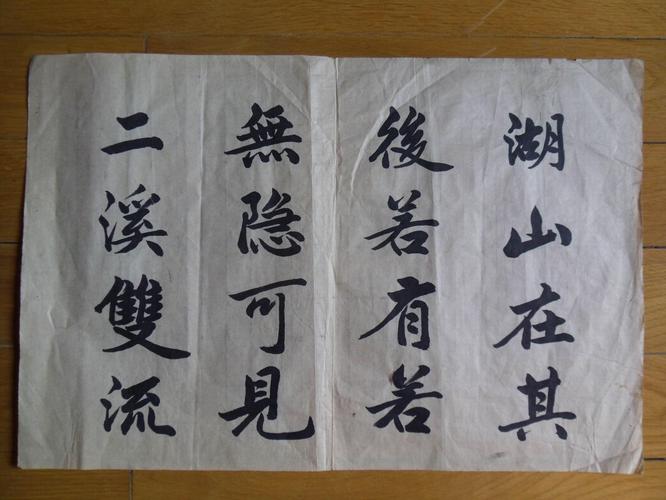 湖山在其
後若有若
無隐可見
二溪雙流